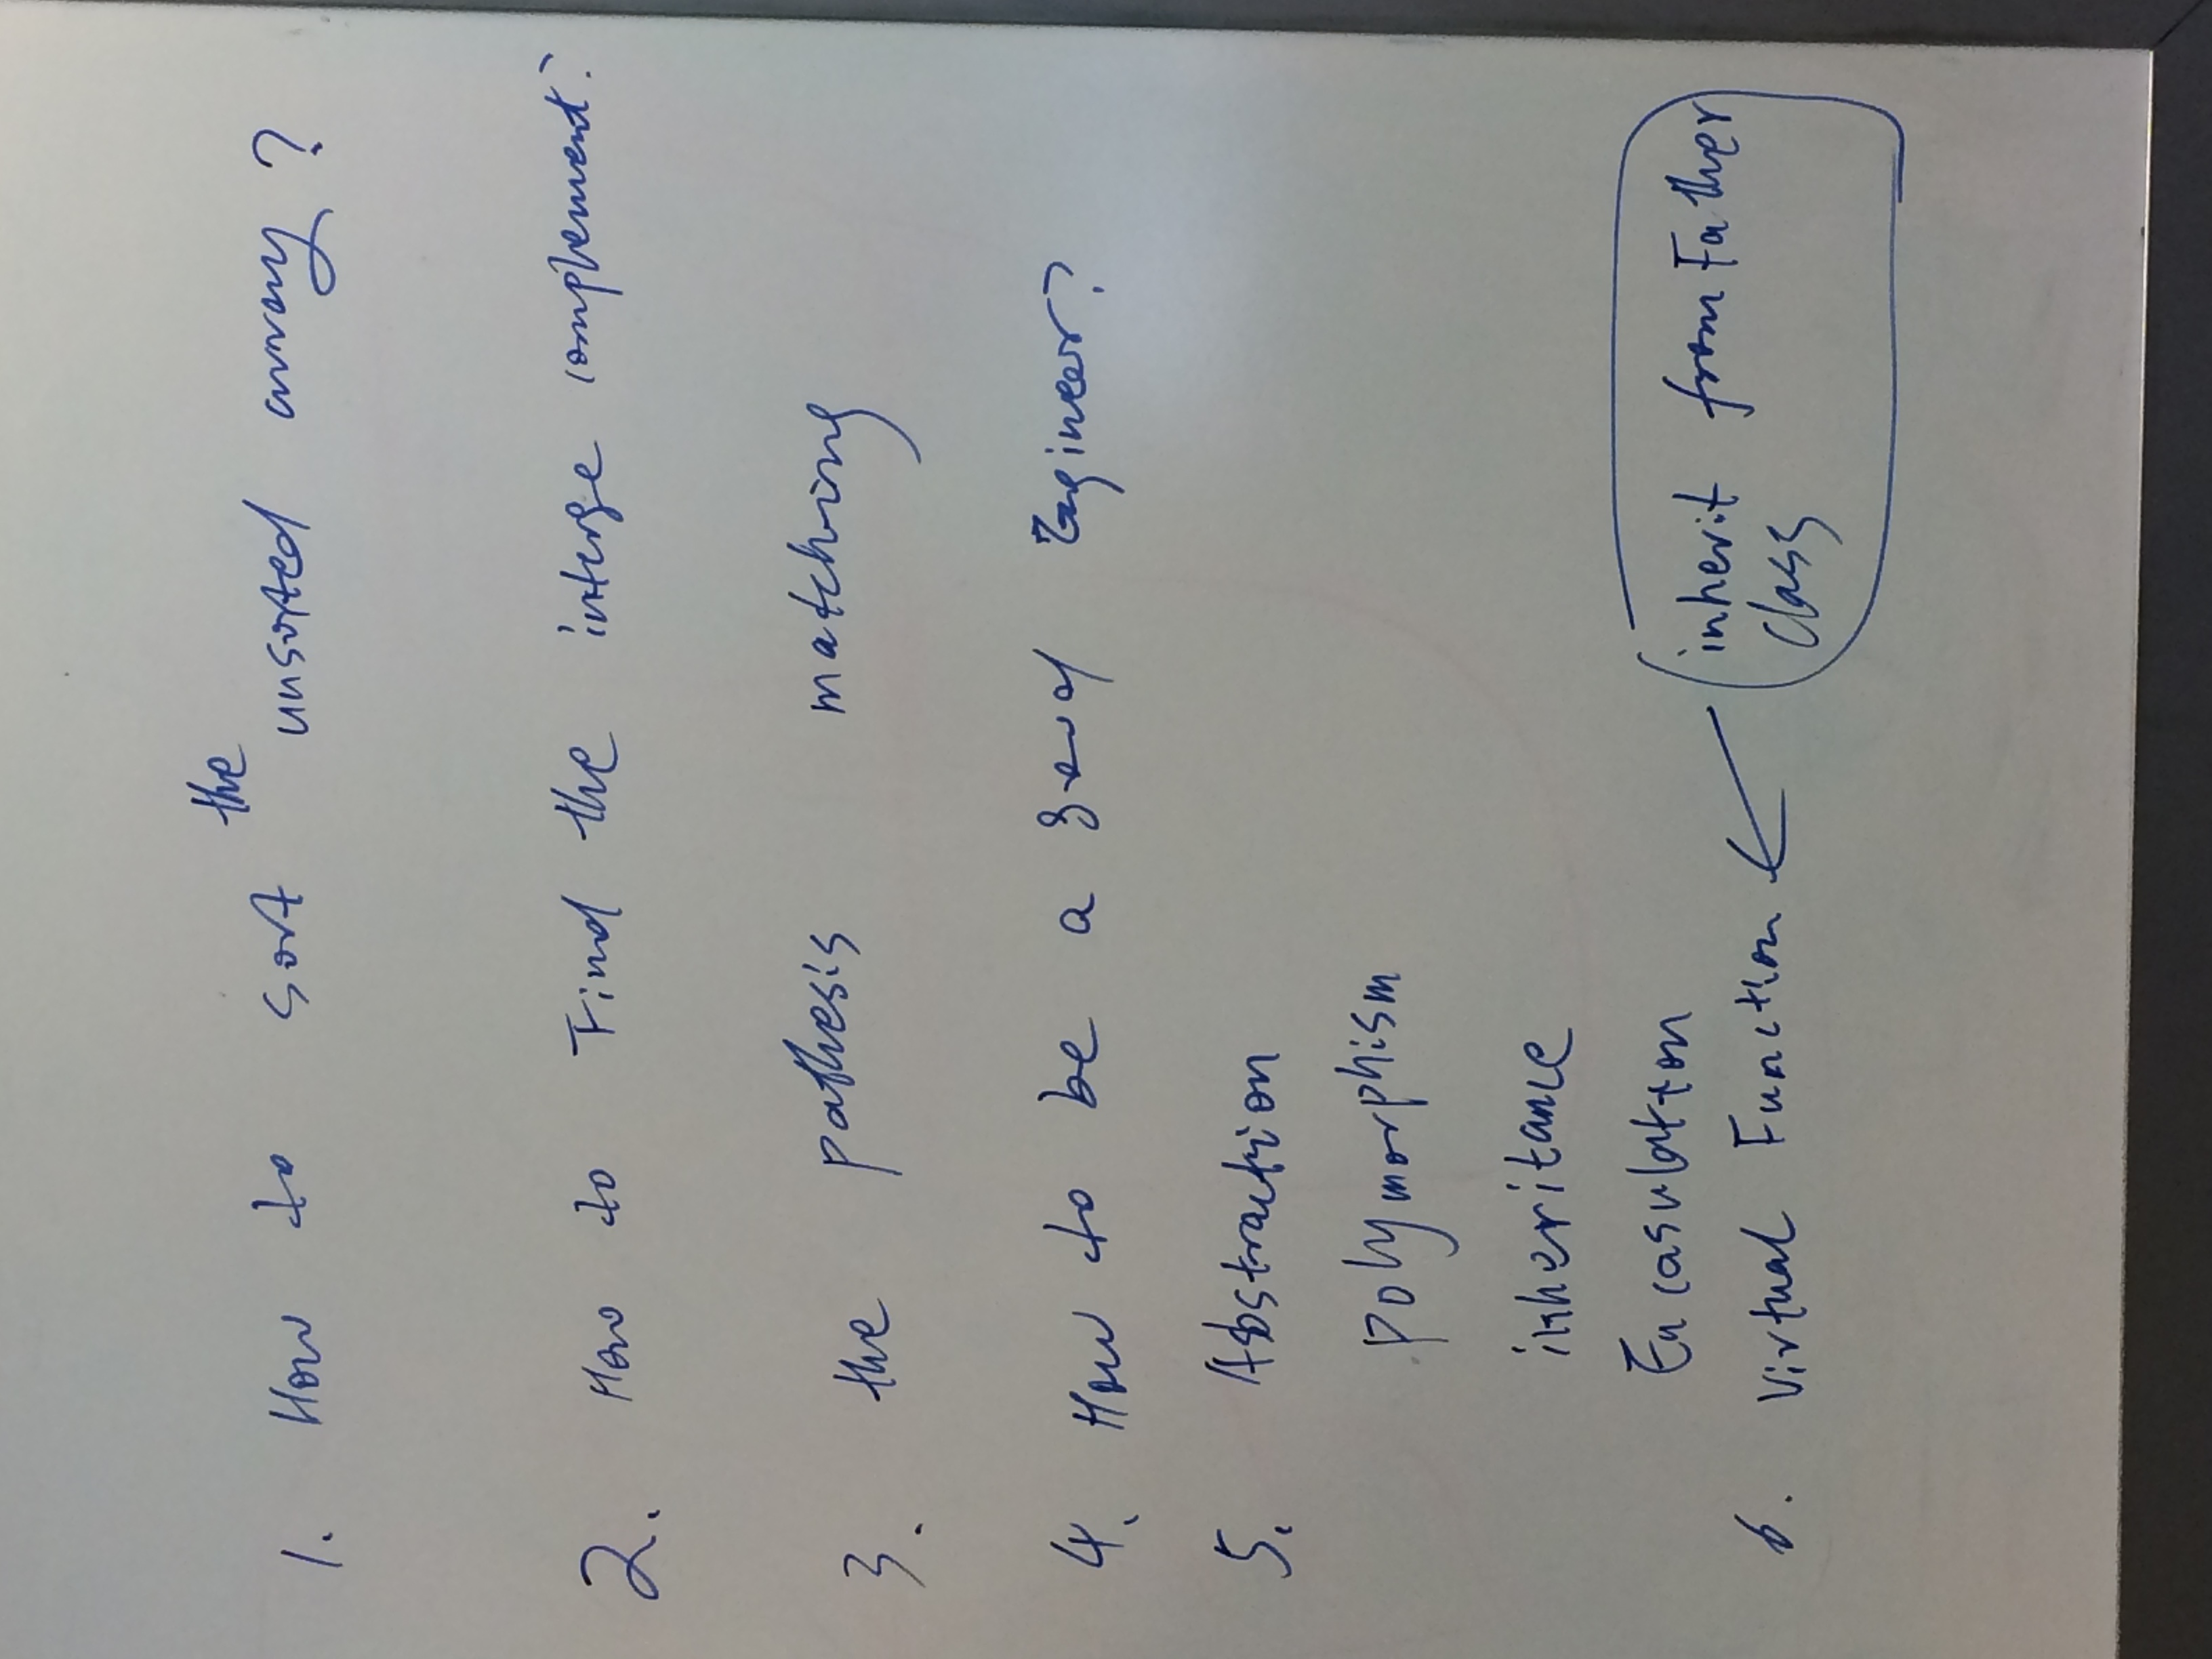 1. How to sort the unsorted array?
2. How to Find the interge complement?
3. the pathesis matching
4. How to be a good Engineer?
5. Abstraction
polymorphism
inheritance
Encasulation
6. Virtual Function
inherit from Father
class